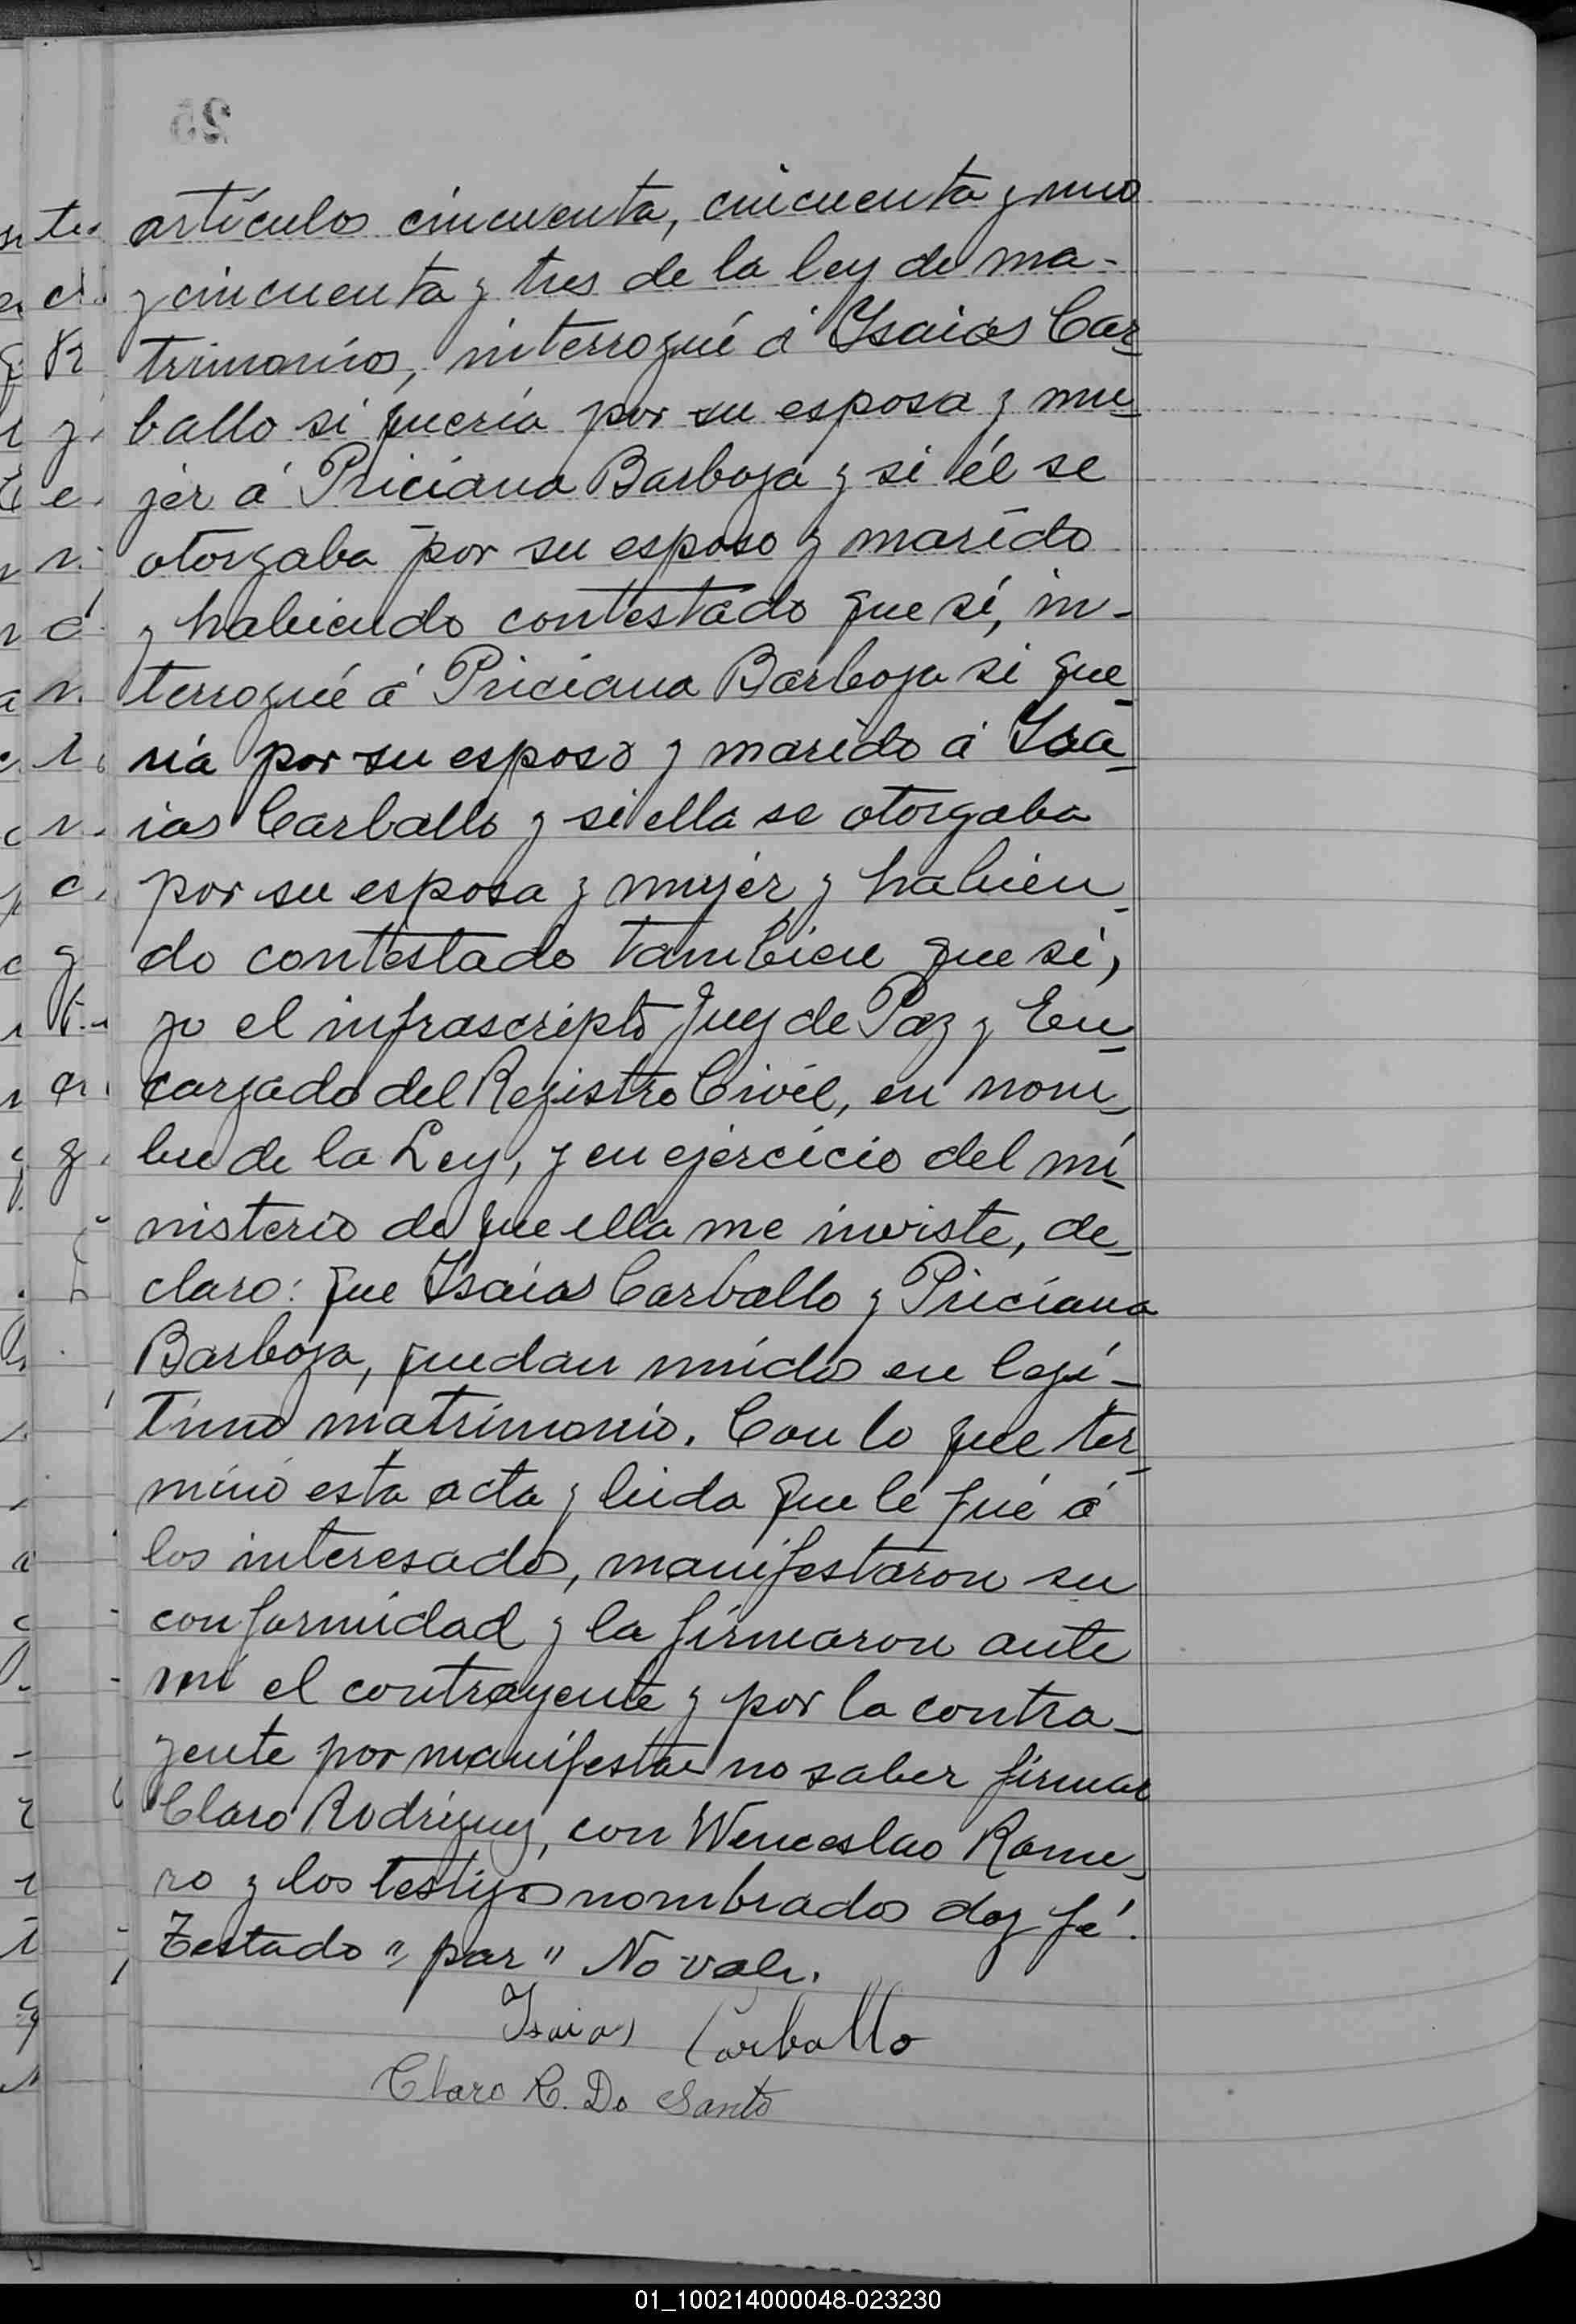 25
artículos cincuenta, cincuenta y uno
y cincuenta y tres de la ley de ma-
trimonios, interrogué á Isaias Car-
ballo si quería por su esposa y mu-
jer á Priciana Barboza y si él se
otorgaba por su esposo y marido
y habiendo contestado que sí, in-
terrogué á Priciana Barboza si que-
ría por su esposo y marido á Isa-
ias Carballo y si ella se otorgaba
por su esposa y mujer y habien-
do contestado tambien que sí,
yo el infrascripto Juez de Paz y En-
cargado del Registro Civil, en nom-
bre de la Ley, y en ejercicio del mi-
nisterio de que ella me inviste, de-
claro: que Isaias Carballo y Priciana
Barboza, quedan unidos en legí-
timo matrimonio. Con lo que ter-
minó esta acta y leida que le fué á
los interesados, manifestaron su
conformidad y la firmaron ante
mí el contrayente y por la contra-
yente por manifestar no saber firmar
Claro Rodriguez, con Wenceslao Rome-
ro y los testigos nombrados doy fé.
Testado "par" No vale.
Isaias Carballo
Claro R. Do Santo
01_100214000048-023230